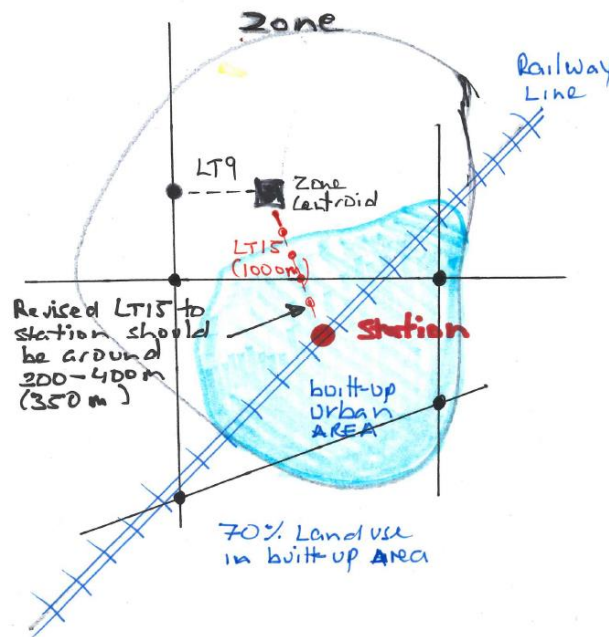 Zone
Railway
Line
LT9
Zone
Centroid
LT15
(1000m)
Revised LT15 to
station should
be around
200-400m
(350m)
Station
built-up
urban
AREA
70% Land use
in built-up AREA